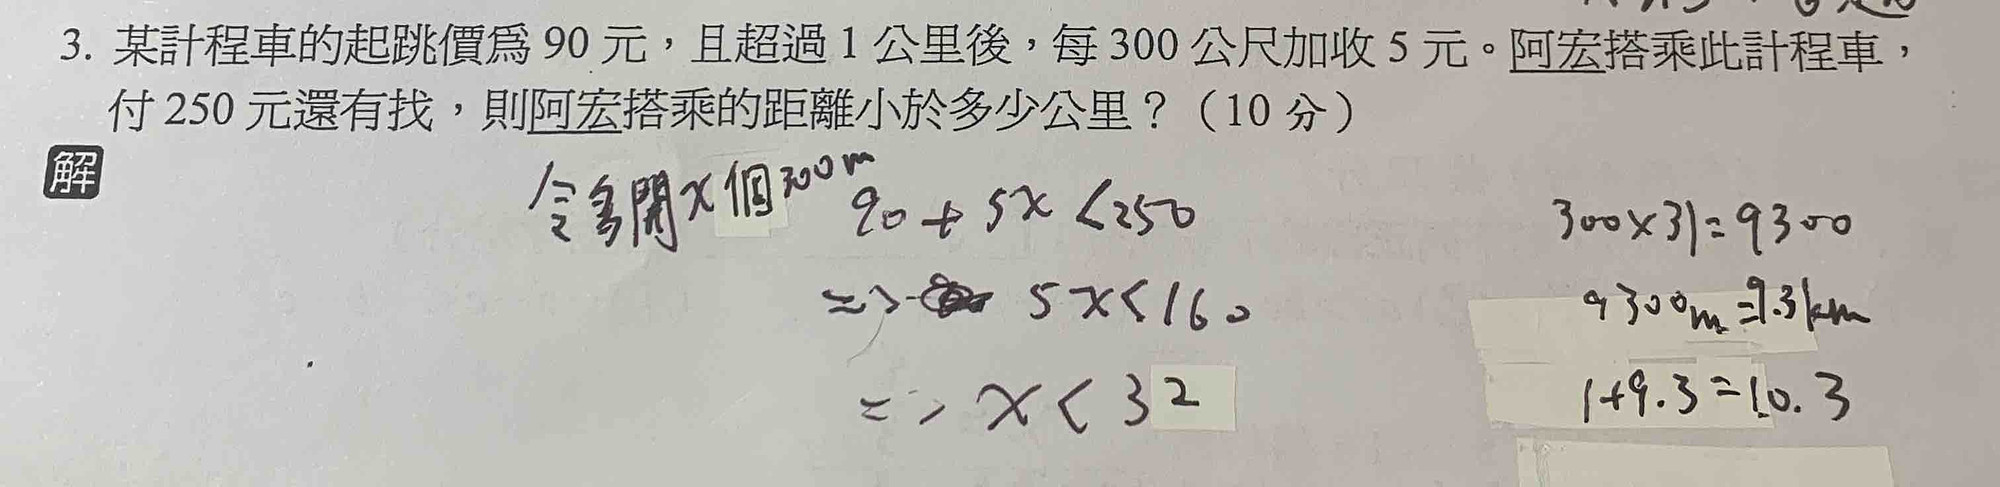 3. 某計程車的起跳價為 90 元，且超過 1 公里後，每 300 公尺加收 5 元。阿宏搭乘此計程車，
付 250 元還有找，則阿宏搭乘的距離小於多少公里？（10 分）
解
令多開 x 個 300m
90 + 5x < 250
=> 5x < 160
=> x < 32
300×31=9300
9300m=9.3km
1+9.3=10.3